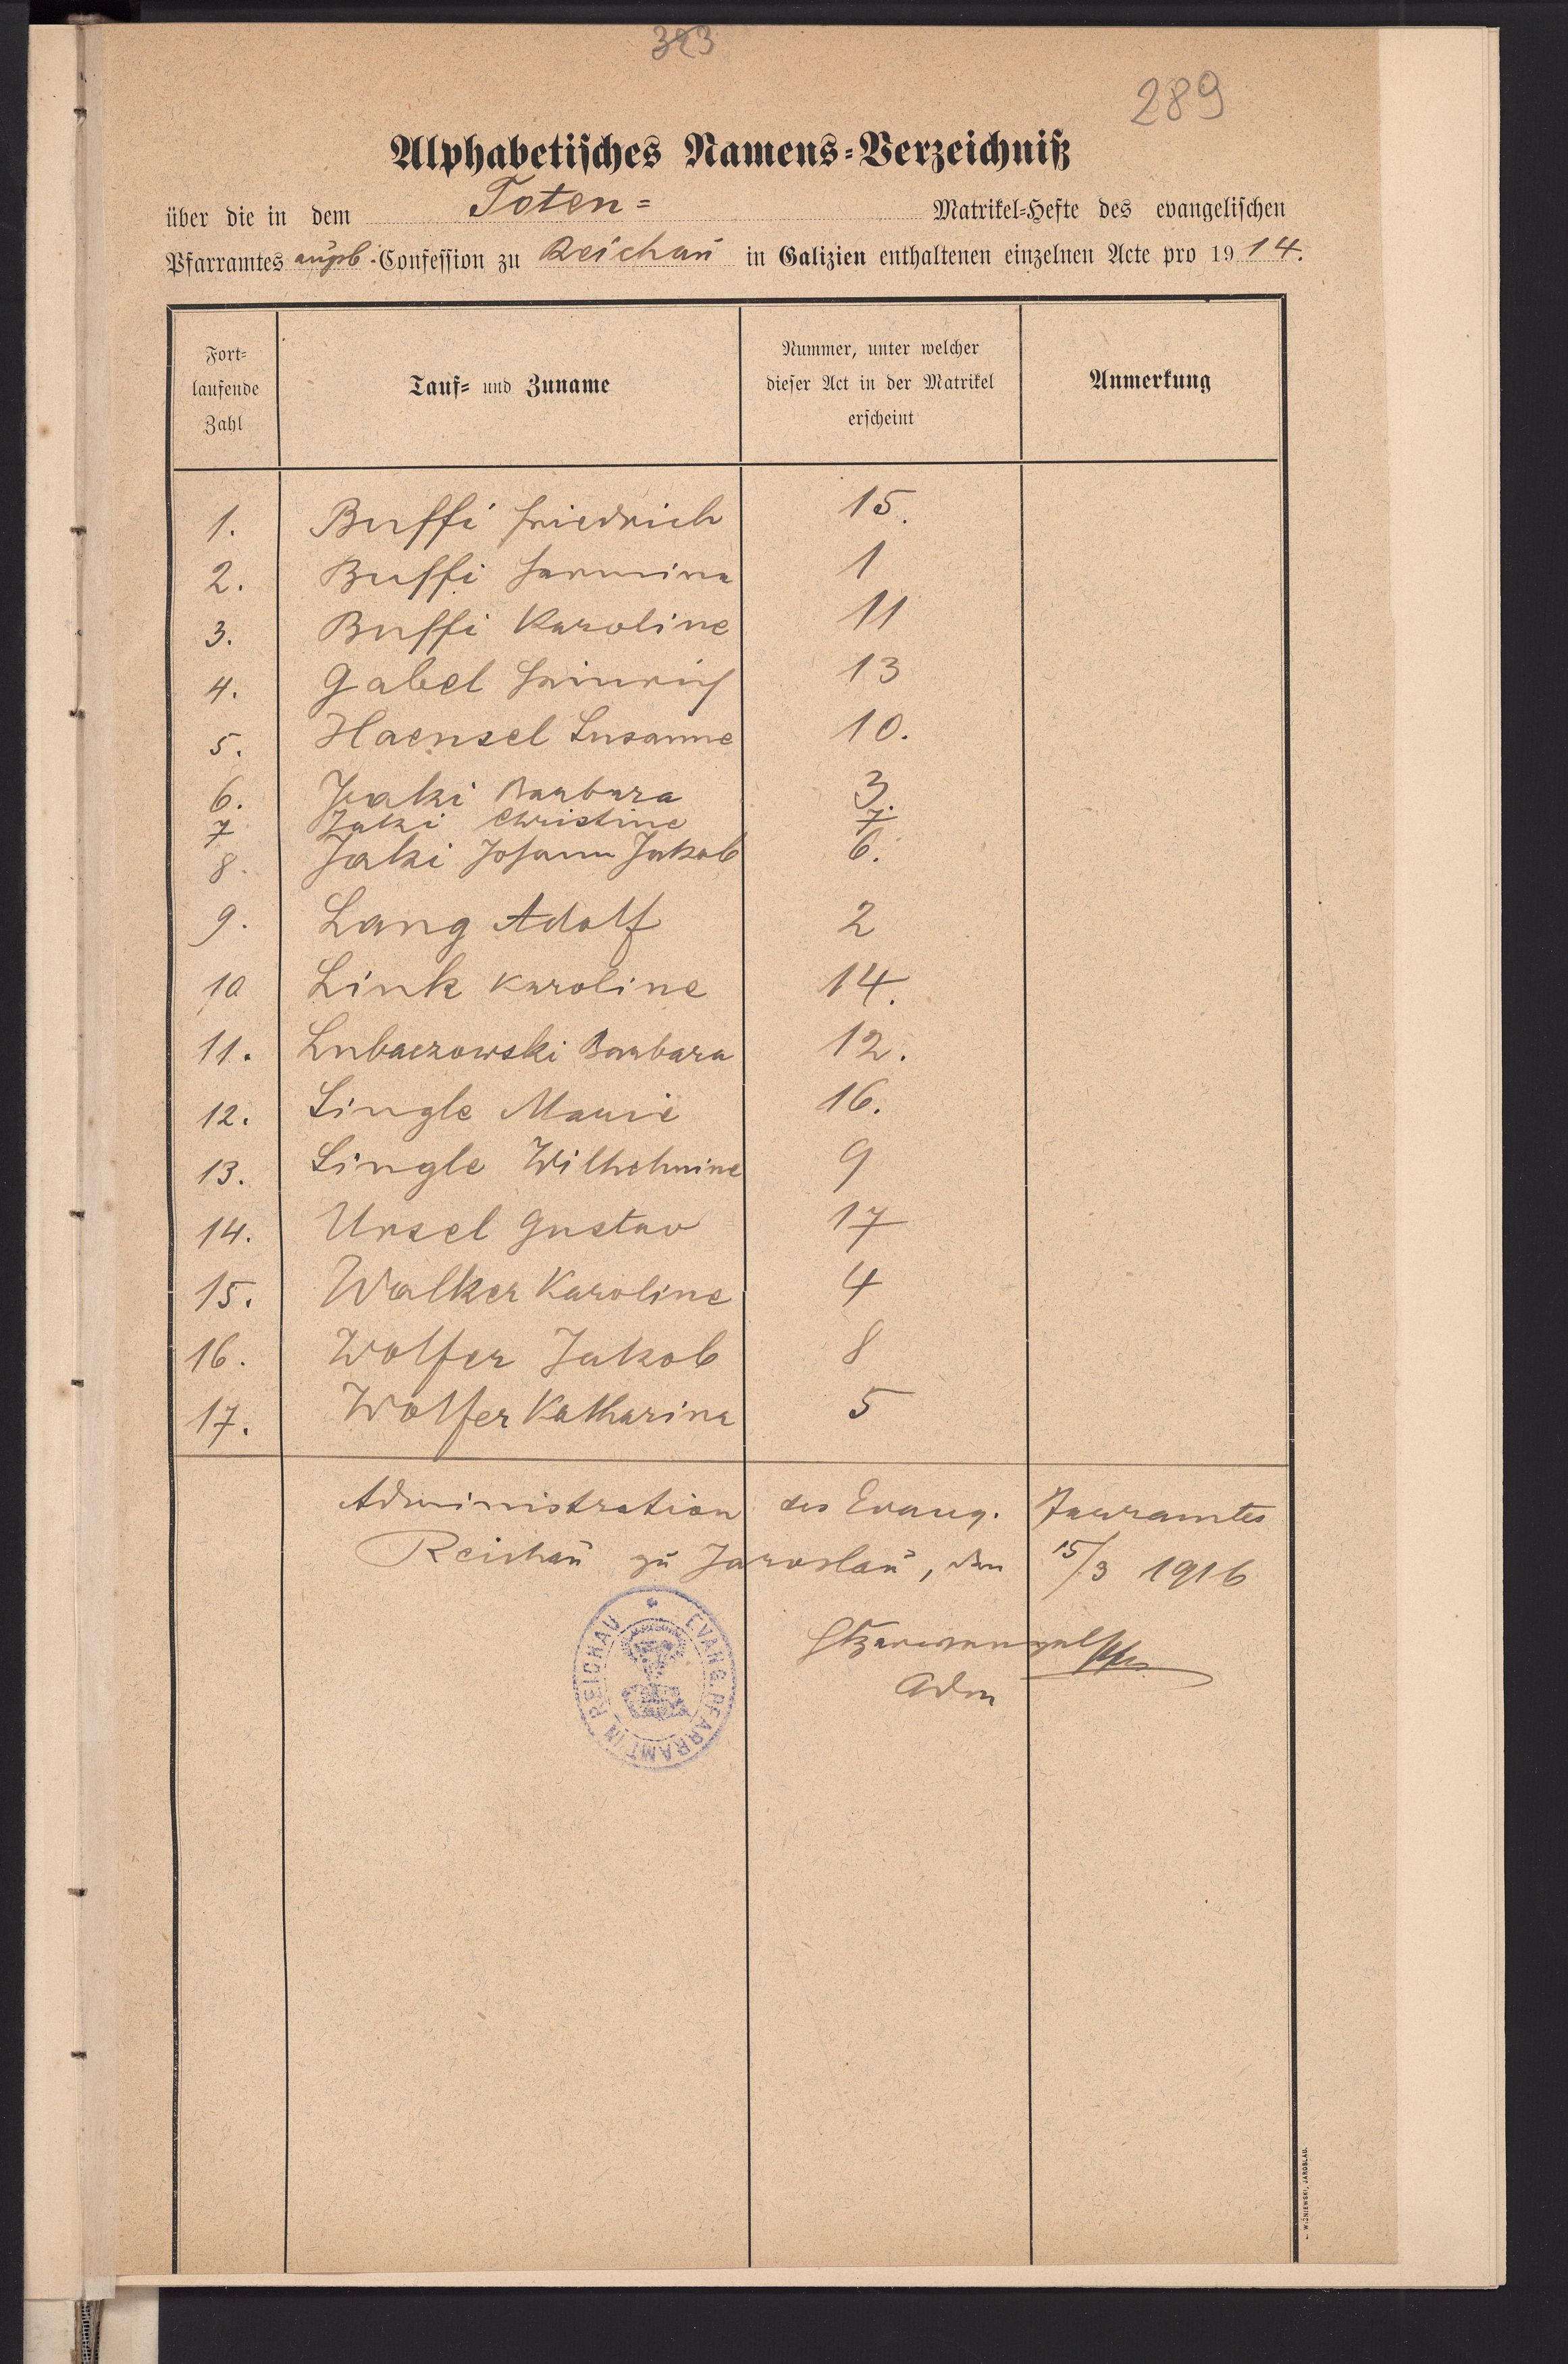 323
289
Alphabetisches Namens-Verzeichniß
über die in dem Toten- Matrikel-Hefte des evangelischen
Pfarramtes augsb. Confession zu Reichau in Galizien enthaltenen einzelnen Acte pro 1914.
Fort-laufende Zahl
Tauf- und Zuname
Nummer, unter welcher dieser Act in der Matrikel erscheint
Anmerkung
1. Buffi Friedrich 15.
2. Buffi Hermina 1
3. Buffi Karoline 11
4. Gabel Heinrich 13
5. Haensel Susanne 10.
6. Jaki Barbara 3.
7 Jaki Christine 7.
8. Jaki Johann Jakob 6.
9. Lang Adolf 2
10 Link Karoline 14.
11. Lubaczowski Barbara 12.
12. Lingle Marie 16.
13. Lingle Wilhelmine 9
14. Ursel Gustav 17
15. Walker Karoline 4
16. Wolfer Jakob 8
17. Wolfer Katharina 5
Administration des Evang. Pfarramtes
Reichau zu Jaroslau, den 15/3 1916
Adm
EVANG. PFARRAMT IN REICHAU
WIŚNIEWSKI, JAROSLAU.